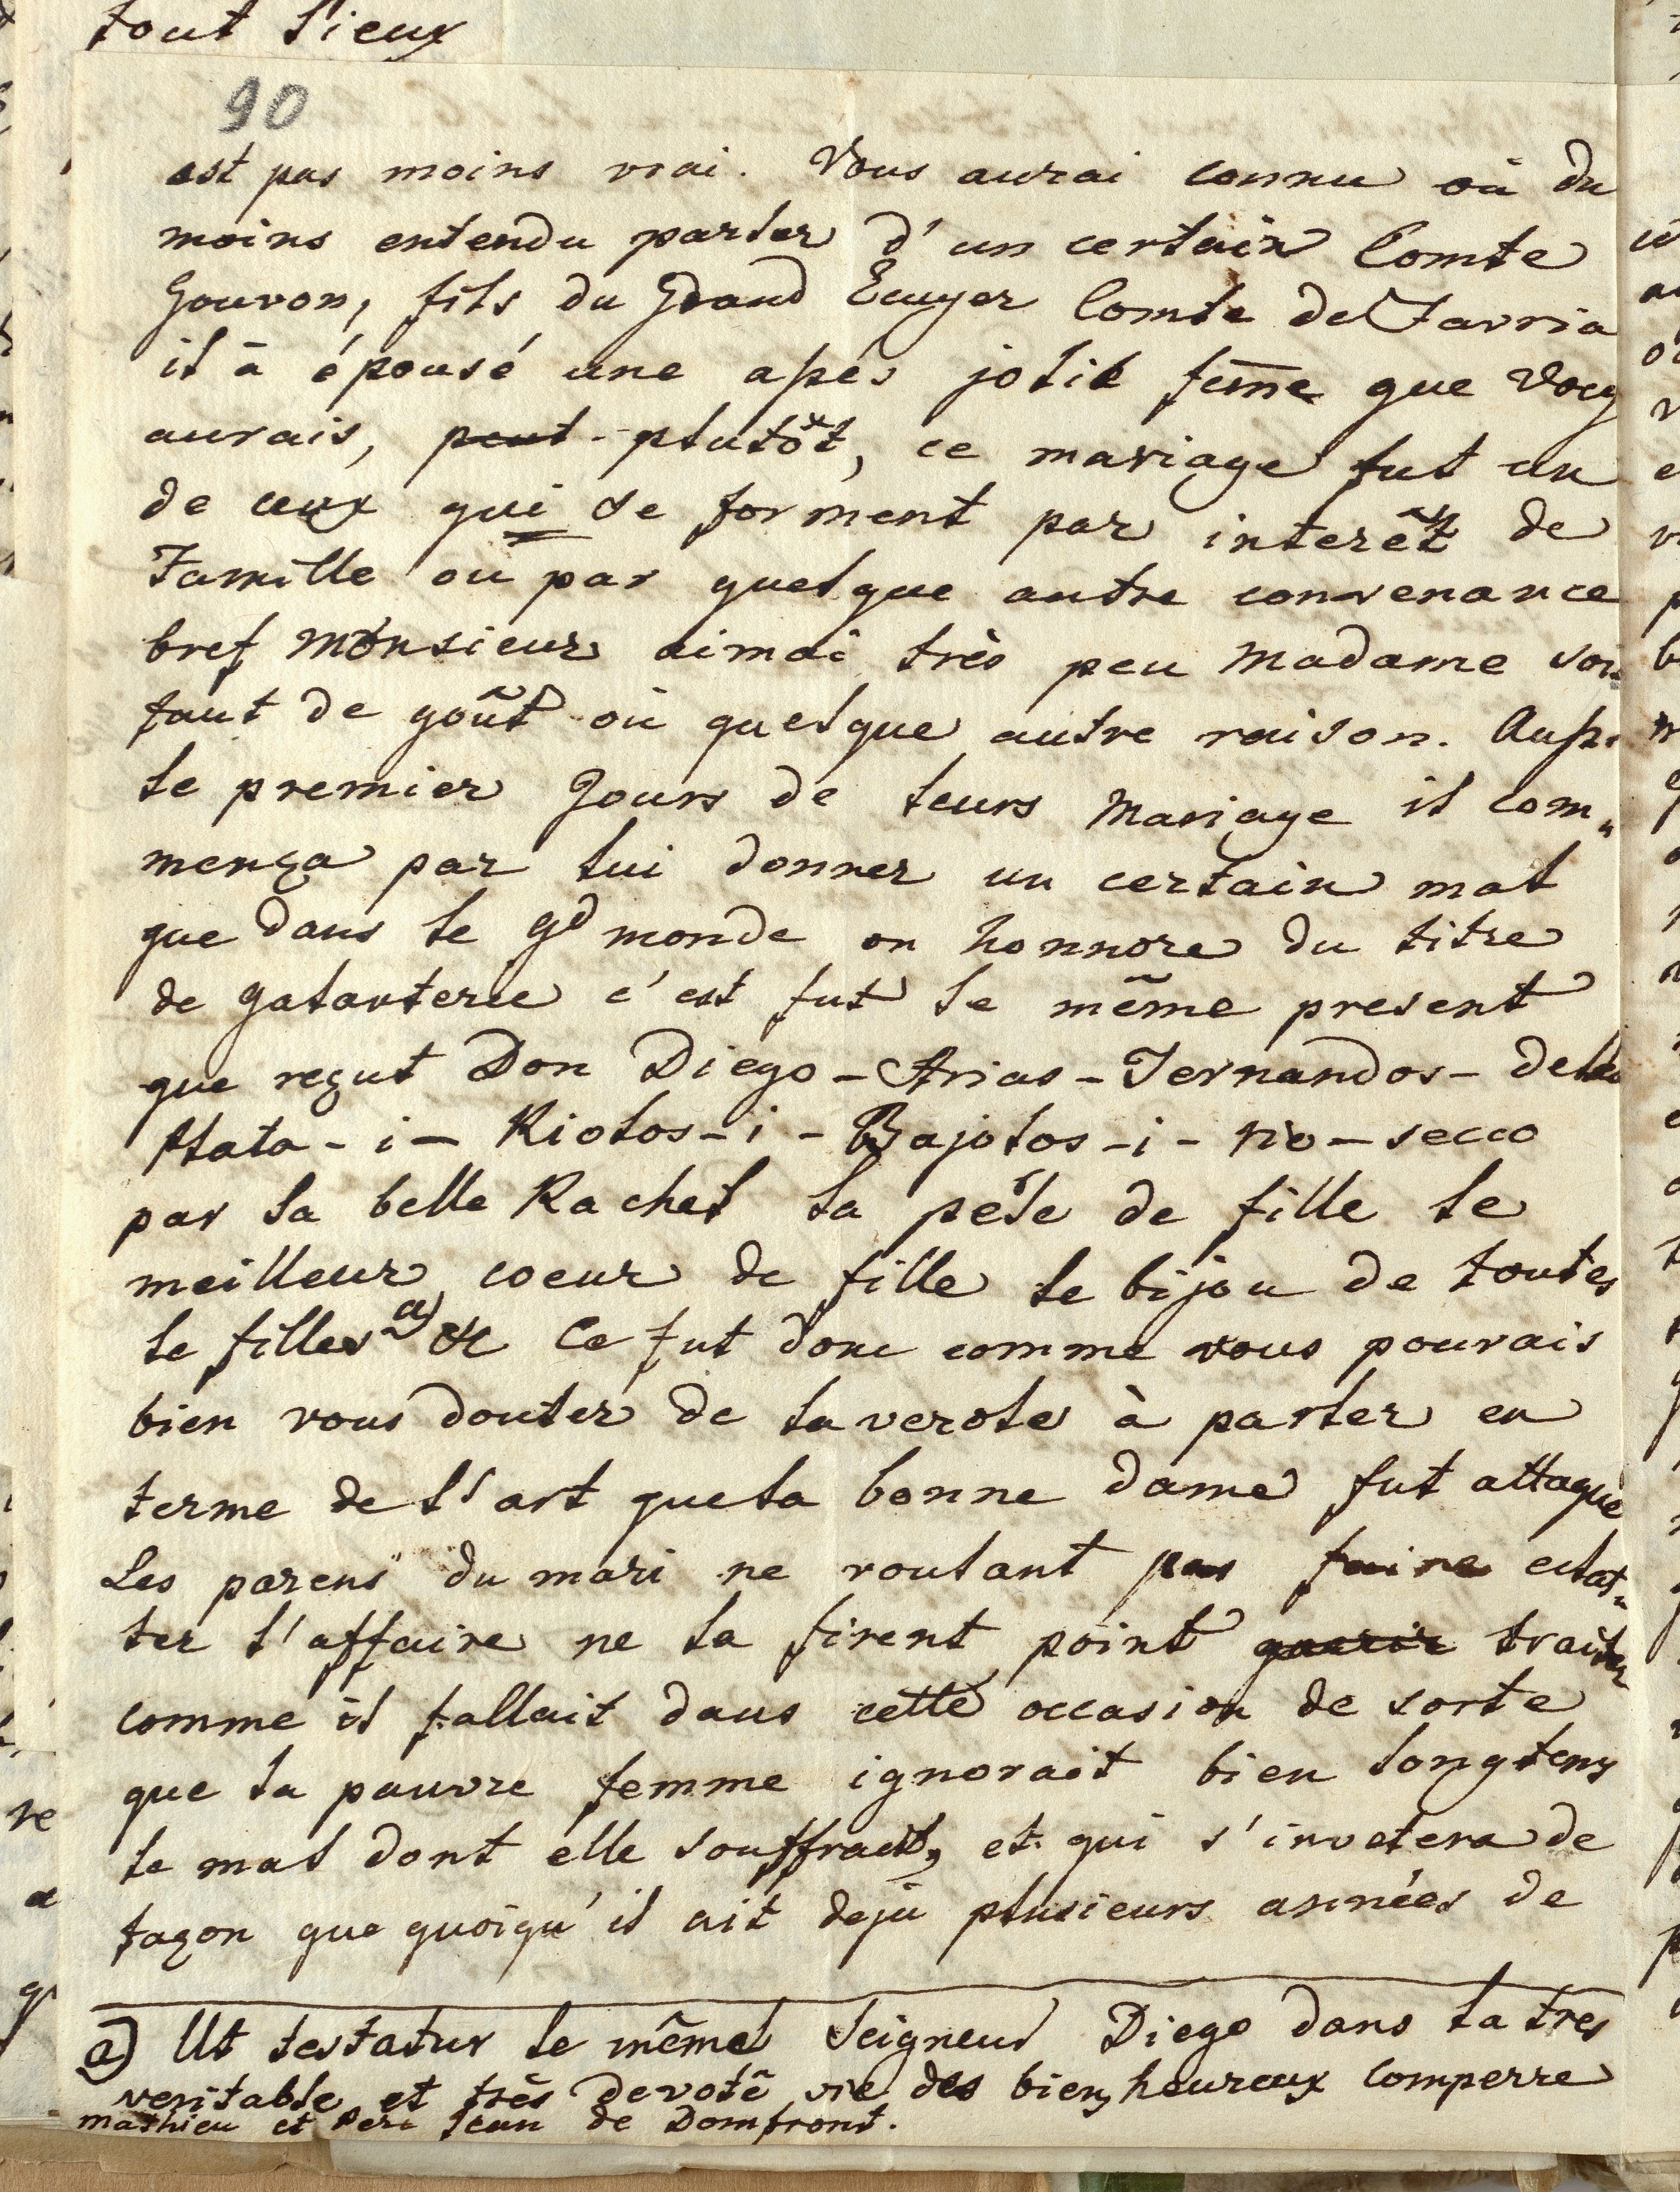 tout Sieux
90
est pas moins vrai. Vous aurai connu où du
moins entendu parler d'un certain Comte
Gouvon, fils du Grand Ecuyer Comte de Favria
il à épousé une assés jolie fem̄e que Vous
aurais, peut - plutôt, ce mariage fut un
de ceux qui se forment par interêt de
Famille où par quelque autre convenance
bref Monsieur aimai très peu Madame soi
faut de goût où quelque autre raison. Aussi
le premier Jours de leurs Mariage il com„
mença par lui donner un certain mal
que dans le gd monde on honnore du titre
de galanterie c'est fut le même present
que reçut Don Diego - Arias - Fernandos - de la
Plata - i - Riolos - i - Bajolos - i - rio - secco
par la belle Rachel la pèle de fille le
meilleur coeur de fille le bijou de toutes
le filles a) &c Ce fut donc comme vous pouvais
bien vous douter de la verole à parler en
terme de l'art que la bonne dame fut attaqué
Les parens du mari ne voulant pas faire eclat„
ter l'affaire ne la firent point guerir traiter
comme il fallait dans cette occasion de sorte
que la pauvre femme ignorait bien longtems
le mal dont elle souffrait, et qui s'invetera de
façon que quoiqu'il ait deja plusieurs années de
a) Ut testatur le même Seigneur Diego dans la tres
veritable et très devote vie des bien heureux Comperre
mathieu et Pere Jean de Domfront.